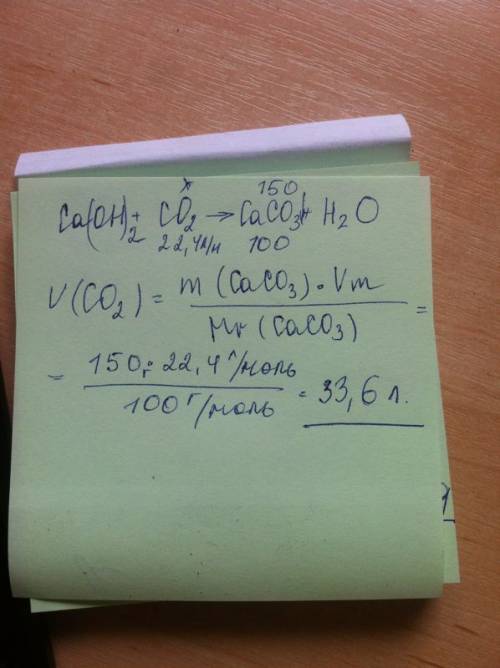 x 150
Ca(OH)₂ + CO₂ → CaCO₃↓ + H₂O
22,4 л/м 100
V(CO₂) = m(CaCO₃) · Vm / Mr(CaCO₃) =
= 150г · 22,4 г/моль / 100 г/моль = 33,6 л.